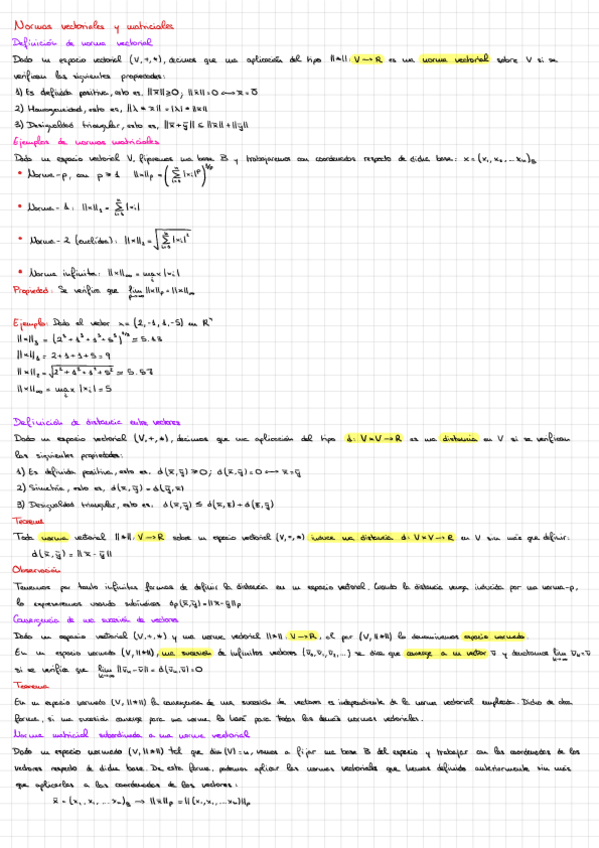 Normas vectoriales y matriciales
Definición de norma vectorial
Dado un espacio vectorial (V,+,*), decimos que una aplicación del tipo ||*||: V→R es una norma vectorial sobre V si se
verifican las siguientes propiedades:
1) Es definida positiva, esto es, ||x̄||≥0, ||x̄||=0 ⟷ x̄=0̄
2) Homogeneidad, esto es, ||λ*x̄||=|λ|*||x̄||
3) Desigualdad triangular, esto es, ||x̄+ȳ|| ≤ ||x̄||+||ȳ||
Ejemplos de normas matriciales
Dado un espacio vectorial V, fijaremos una base B y trabajaremos con coordenadas respecto de dicha base: x=(x₁,x₂,...xₙ)_B
• Norma-p, con p≥1 ||x||p = (Σ|xᵢ|^p)^(1/p)
• Norma-1: ||x||₁ = Σ|xᵢ|
• Norma-2 (euclídea): ||x||₂ = √(Σ|xᵢ|²)
• Norma infinito: ||x||∞ = max |xᵢ|
Propiedad: Se verifica que lim p→∞ ||x||p = ||x||∞
Ejemplo: Dado el vector x=(2,-1,1,-5) en Rⁿ
||x||₃ = (2³+1³+1³+5³)^(1/3) = 5.13
||x||₁ = 2+1+1+5=9
||x||₂ = √(2²+1²+1²+5²) = 5.57
||x||∞ = max |xᵢ| = 5
Definición de distancia entre vectores
Dado un espacio vectorial (V,+,*), decimos que una aplicación del tipo d: V×V→R es una distancia en V si se verifican
las siguientes propiedades:
1) Es definida positiva, esto es, d(x̄,ȳ)≥0; d(x̄,ȳ)=0 ⟷ x̄=ȳ
2) Simetría, esto es, d(x̄,ȳ)=d(ȳ,x̄)
3) Desigualdad triangular, esto es, d(x̄,ȳ) ≤ d(x̄,z̄)+d(z̄,ȳ)
Teorema
Toda norma vectorial ||*||: V→R sobre un espacio vectorial (V,+,*) induce una distancia d: V×V→R en V sin más que definir:
d(x̄,ȳ)=||x̄-ȳ||
Observación
Tenemos por tanto infinitas formas de definir la distancia en un espacio vectorial. Cuando la distancia venga inducida por una norma-p,
lo expresaremos usando subíndices dp(x̄,ȳ)=||x̄-ȳ||p
Convergencia de una sucesión de vectores
Dado un espacio vectorial (V,+,*) y una norma vectorial ||*||: V→R, al par (V,||*||) lo denominamos espacio normado.
En un espacio normado (V,||*||), una sucesión de infinitos vectores {v̄₀,v̄₁,v̄₂,...} se dice que converge a un vector v̄ y denotamos lim v̄ₙ=v̄
si se verifica que lim ||v̄ₙ-v̄||=d(v̄ₙ,v̄)=0
Teorema
En un espacio normado (V,||*||) la convergencia de una sucesión de vectores es independiente de la norma vectorial empleada. Dicho de otra
forma, si una sucesión converge para una norma, lo hará para todas las demás normas vectoriales.
Norma matricial subordinada a una norma vectorial
Dado un espacio normado (V,||*||) tal que dim(V)=n, vamos a fijar una base B del espacio y trabajar con las coordenadas de los
vectores respecto de dicha base. De esta forma, podemos aplicar las normas vectoriales que hemos definido anteriormente sin más
que aplicarlas a las coordenadas de los vectores:
x̄=(x₁,x₁,...xₙ)_B → ||x̄||p=||(x₁,x₁,...xₙ)||p